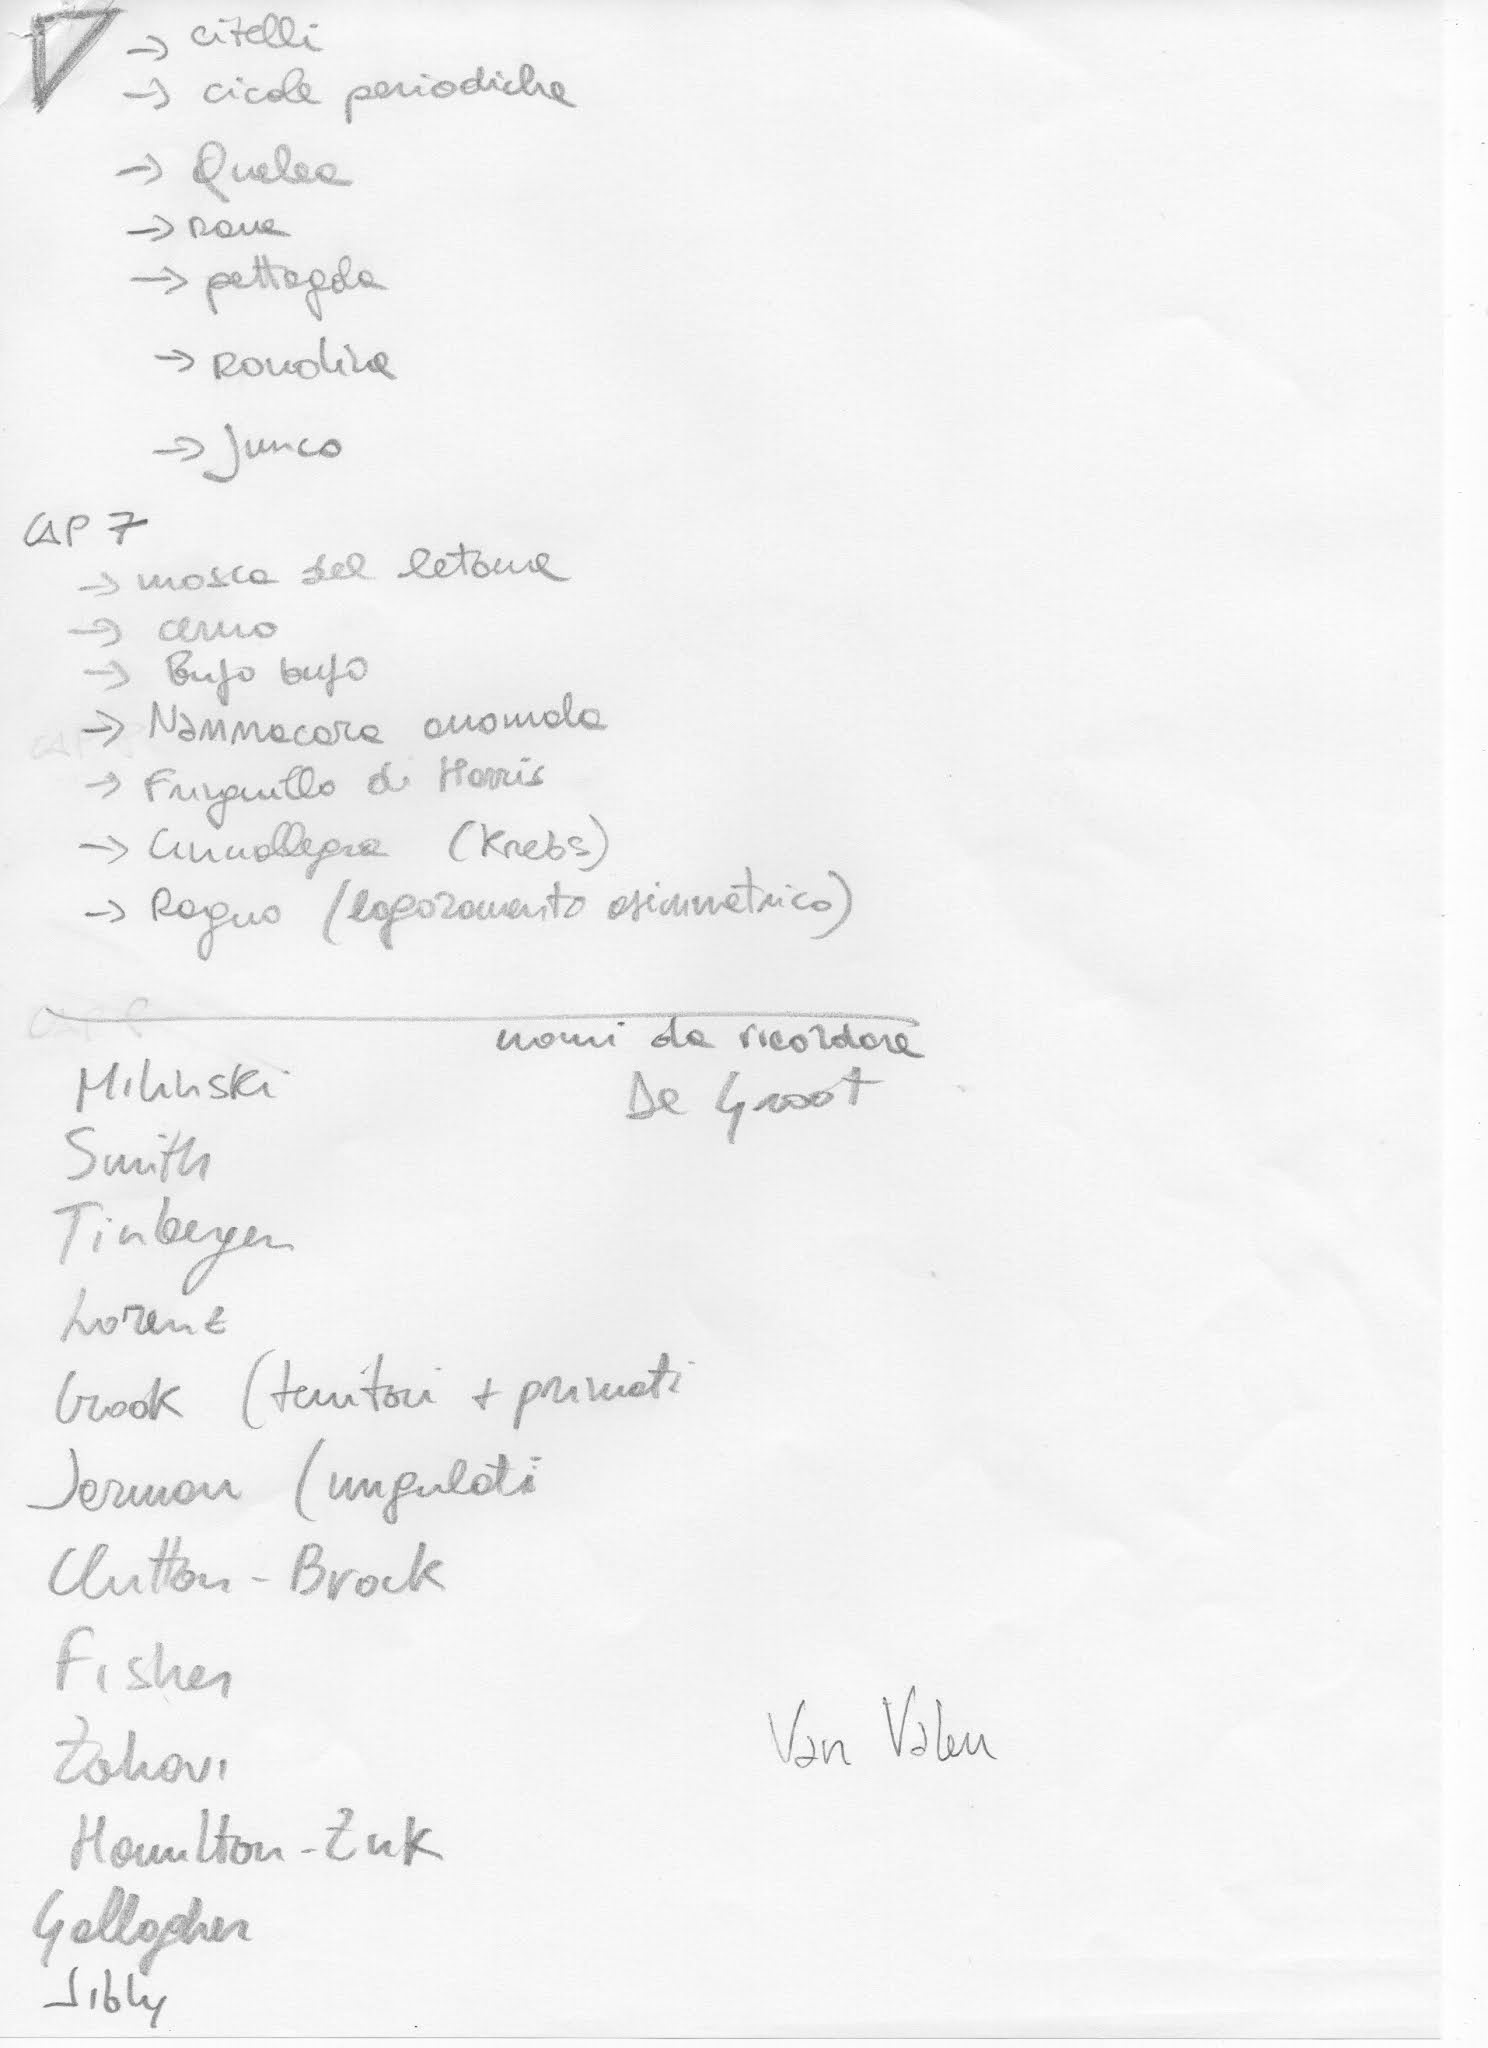 → citelli
→ cicale periodiche
→ Quelea
→ rane
→ pettegola
→ rondine
→ Junco
CAP 7
→ mosca del letame
→ cervo
→ Bufo bufo
→ Nannacara anomala
→ Fringuello di Harris
→ Cinciallegra (Krebs)
→ Ragno (logoramento asimmetrico)
nomi da ricordare
Milinski
De Groot
Smith
Tinbergen
Lorenz
Crook (territori + primati
Jarman (ungulati
Clutton-Brock
Fisher
Zahavi
Van Valen
Hamilton-Zuk
Gallagher
Sibly